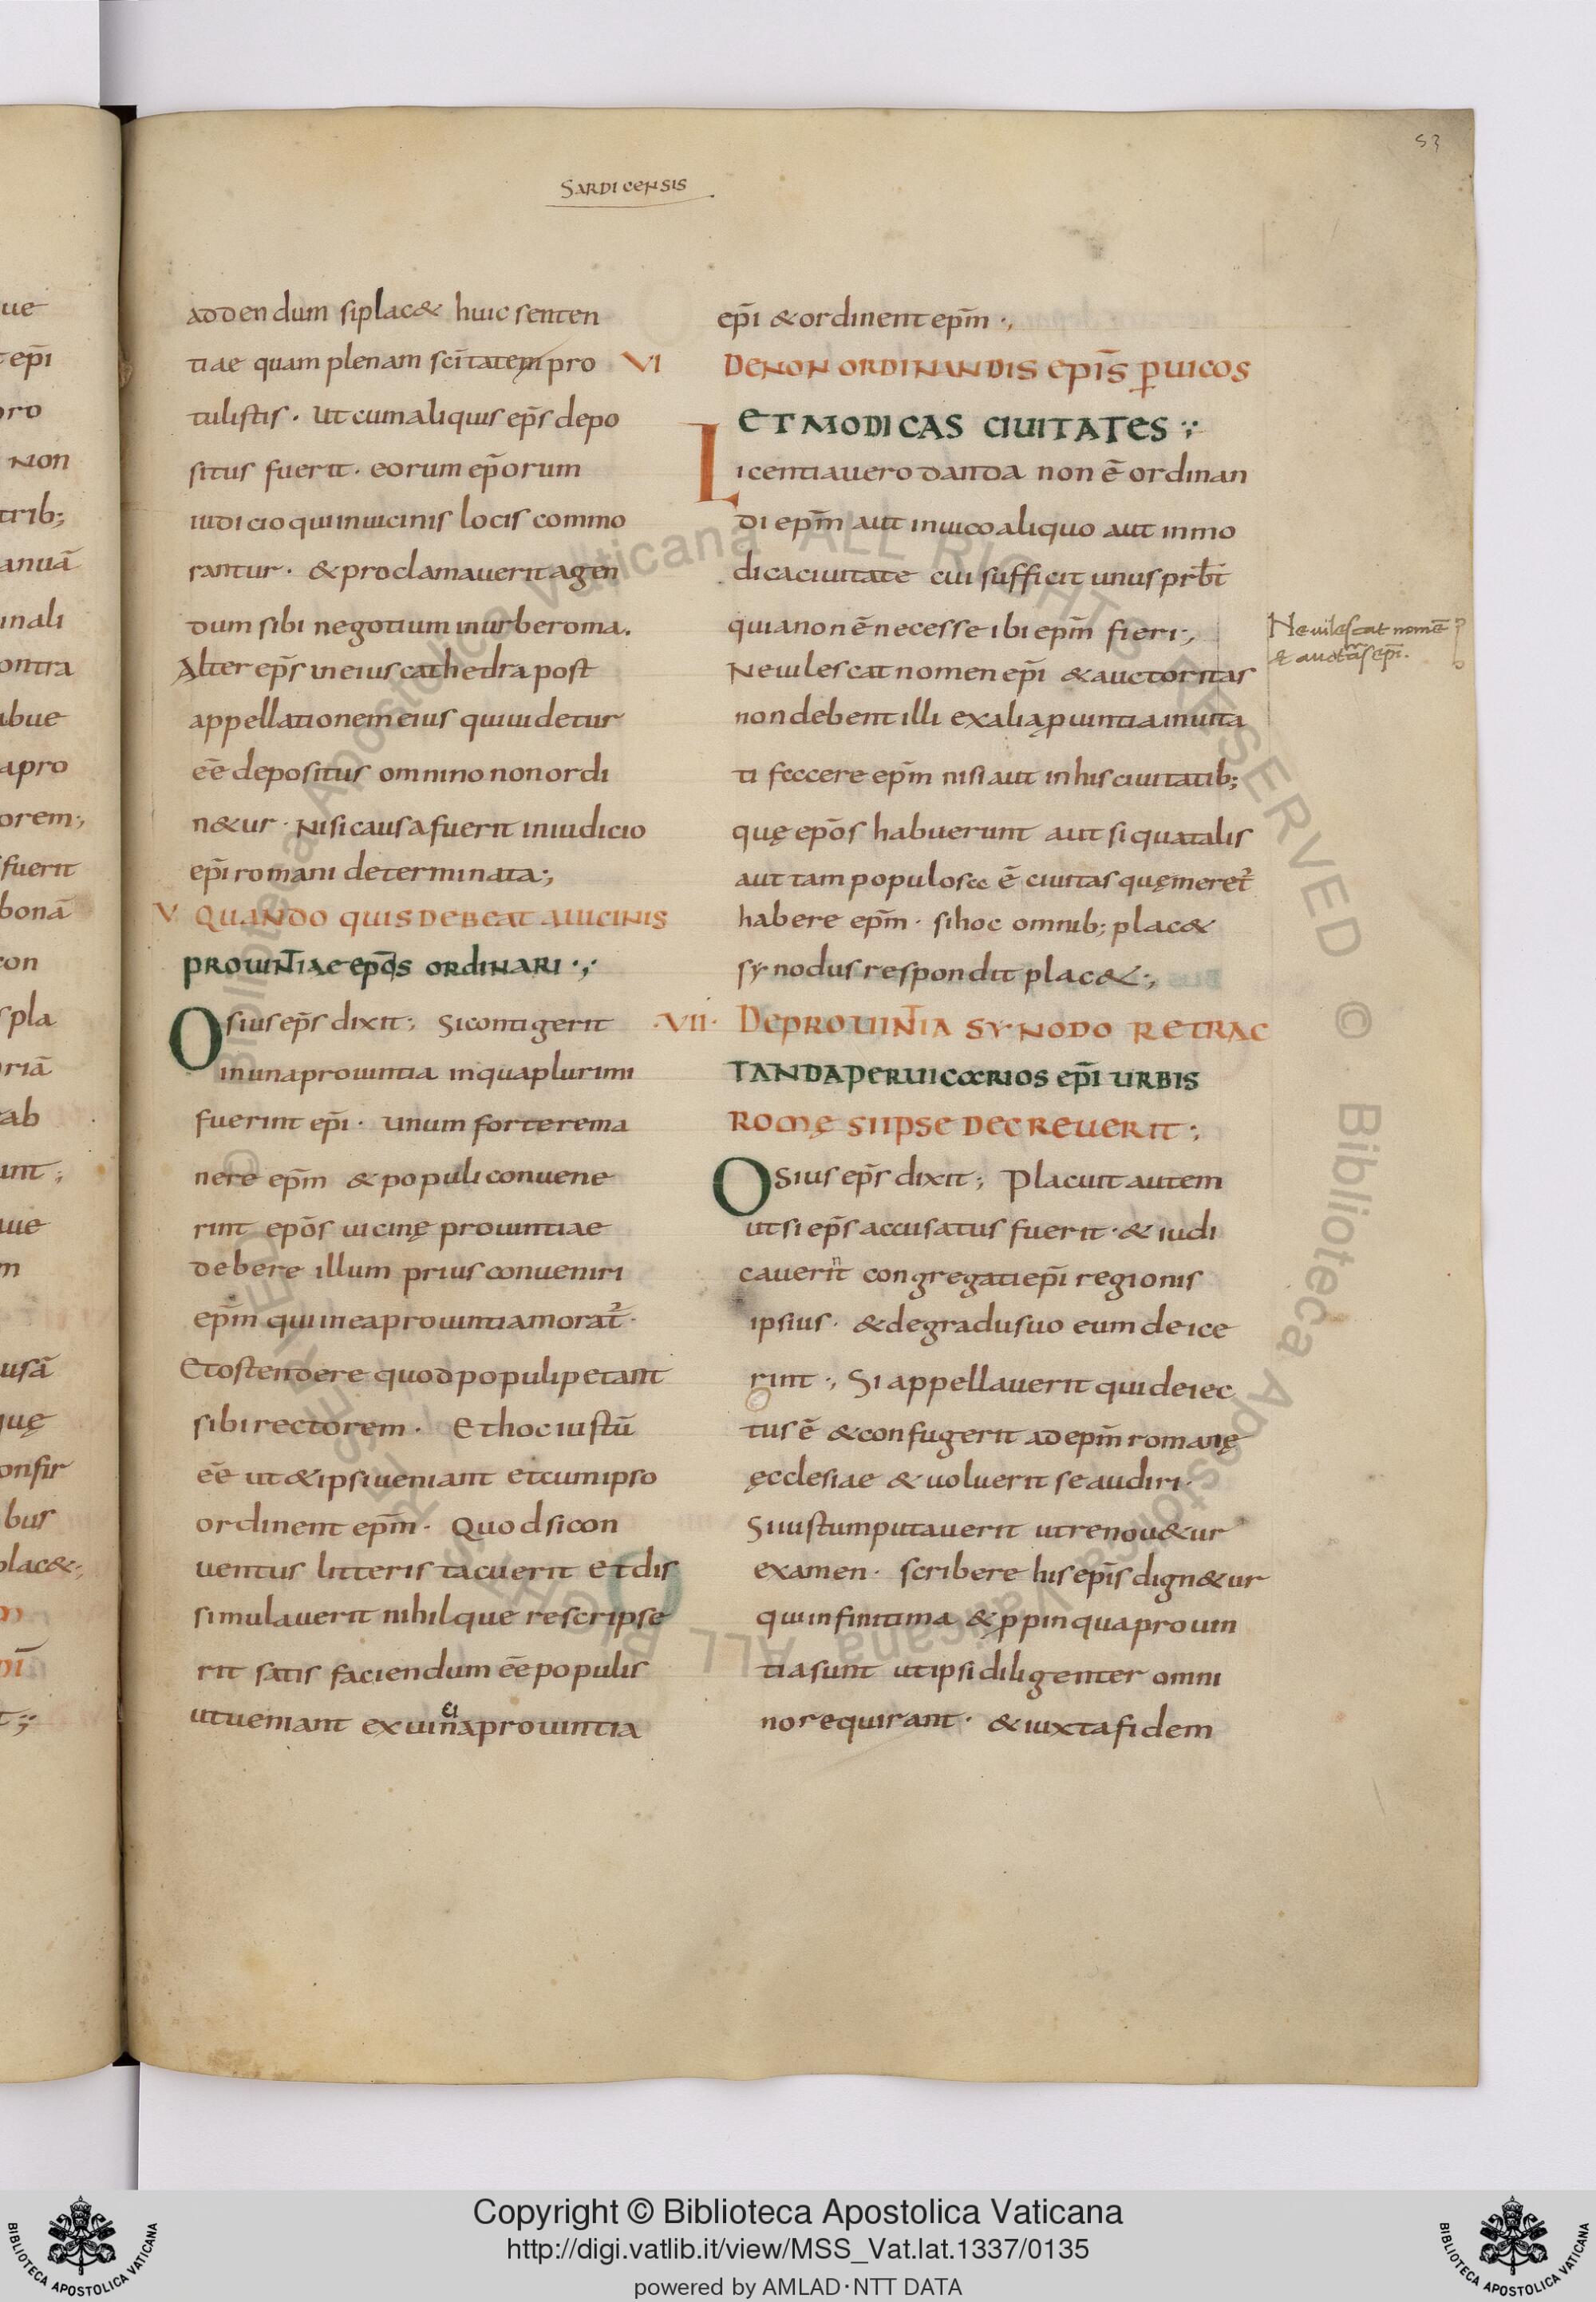 53
SARDICENSIS
addendum si plac& huic senten
tiae quam plenam sc̄itatem pro
tulistis · Ut cum aliquis ep̄s depo
situs fuerit · eorum ep̄orum
iudicio qui in uicinis locis commo
rantur · & proclamauerit agen
dum sibi negotium in urbe roma.
Alter ep̄s in eius cathedra post
appellationem eius qui uidetur
eē depositus omnino non ordi
n&ur · Nisi causa fuerit in iudicio
ep̄i romani determinata·,
V QUANDO QUIS DEBEAT A UICINIS
PROUINT̄IAE EPŌS ORDINARI ·,·
Osius ep̄s dixit; Si contigerit
in una prouintia in qua plurimi
fuerint ep̄i · unum forte rema
nere ep̄m & populi conuene
rint epōs uicinę prouintiae
debere illum prius conueniri
ep̄m qui in ea prouintia morat̄ ·
Et ostendere quod populi petant
sibi rectorem · Et hoc iustū
eē ut & ipsi ueniant et cum ipso
ordinent ep̄m · Quod si con
uentus litteris tacuerit et dis
simulauerit nihilque rescripse
rit satis faciendum eē populis
ut ueniant ex uicina prouintia
ep̄i & ordinent ep̄m ·,
VI DE NON ORDINANDIS EPĪS ꝑ UICOS
ET MODICAS CIUITATES ·,·
Licentia uero danda non ē ordinan
di ep̄m aut in uico aliquo aut in mo
dica ciuitate cui sufficit unus prb̄t
quia non ē necesse ibi ep̄m fieri·,
Ne uilescat nomen ep̄i & auctoritas
non debent illi ex alia ꝓuintia inuita
ti feccere ep̄m nisi aut in his ciuitatib;
quę epōs habuerunt aut si qua talis
aut tam populosa ē ciuitas quę meret̄
habere ep̄m · si hoc omnib; plac&
synodus respondit plac&·,
·VII· DE PROUINT̄IA SYNODO RETRAC
TANDA PER UICARIOS EPĪ URBIS
ROMĘ SI IPSE DECREUERIT ·,
Osius ep̄s dixit; Placuit autem
ut si ep̄s accusatus fuerit · & iudi
cauerint congregati ep̄i regionis
ipsius · & de gradu suo eum deice
rint·, Si appellauerit qui deiec
tus ē & confugerit ad ep̄m romanę
ęcclesiae & uoluerit se audiri ·
Si iustum putauerit ut renou&ur
examen · scribere his ep̄is dign&ur
qui in finitima & ꝓpinqua prouin
tia sunt ut ipsi diligenter omni
no requirant · & iuxta fidem
Ne uilescat nomē
& auctās ep̄i.
Copyright © Biblioteca Apostolica Vaticana
http://digi.vatlib.it/view/MSS_Vat.lat.1337/0135
powered by AMLAD·NTT DATA
BIBLIOTECA APOSTOLICA VATICANA
BIBLIOTECA APOSTOLICA VATICANA